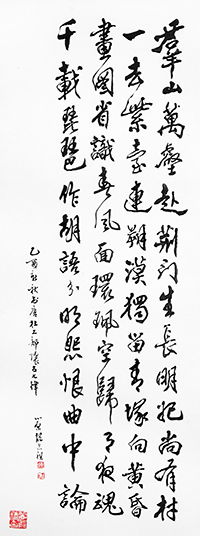 羣山萬壑赴荆门生長明妃尚有村
一去紫臺連朔漠獨留青塚向黃昏
畫圖省識春風面環珮空歸月夜魂
千載琵琶作胡語分明怨恨曲中論
乙酉新秋书唐杜工部懷古七律